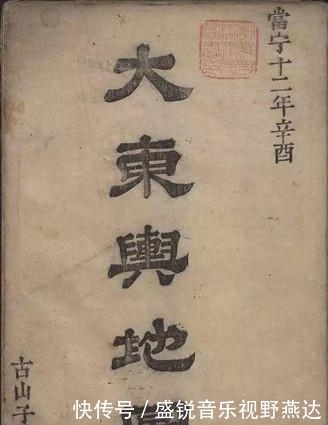 當宁十二年辛酉
大東輿地
古山子
快传号／盛锐音乐视野燕达